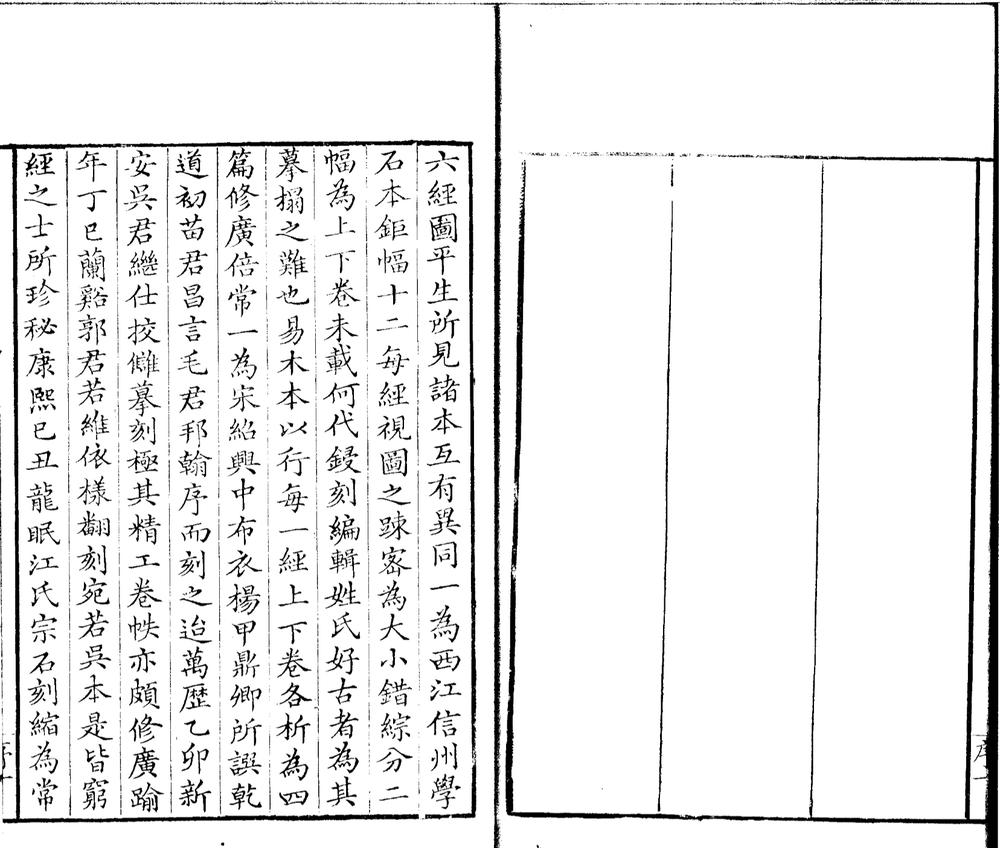 六經圖平生所見諸本互有異同一為西江信州學
石本鉅幅十二每經視圖之踈密為大小錯綜分二
幅為上下卷未載何代鋟刻編輯姓氏好古者為其
摹搨之難也易木本以行每一經上下卷各析為四
篇修廣倍常一為宋紹興中布衣楊甲鼎卿所譔乾
道初苗君昌言毛君邦翰序而刻之迨萬歷乙卯新
安吳君繼仕挍讎摹刻極其精工卷帙亦頗修廣踰
年丁巳蘭谿郭君若維依樣翻刻宛若吳本是皆窮
經之士所珍秘康熙己丑龍眠江氏宗石刻縮為常